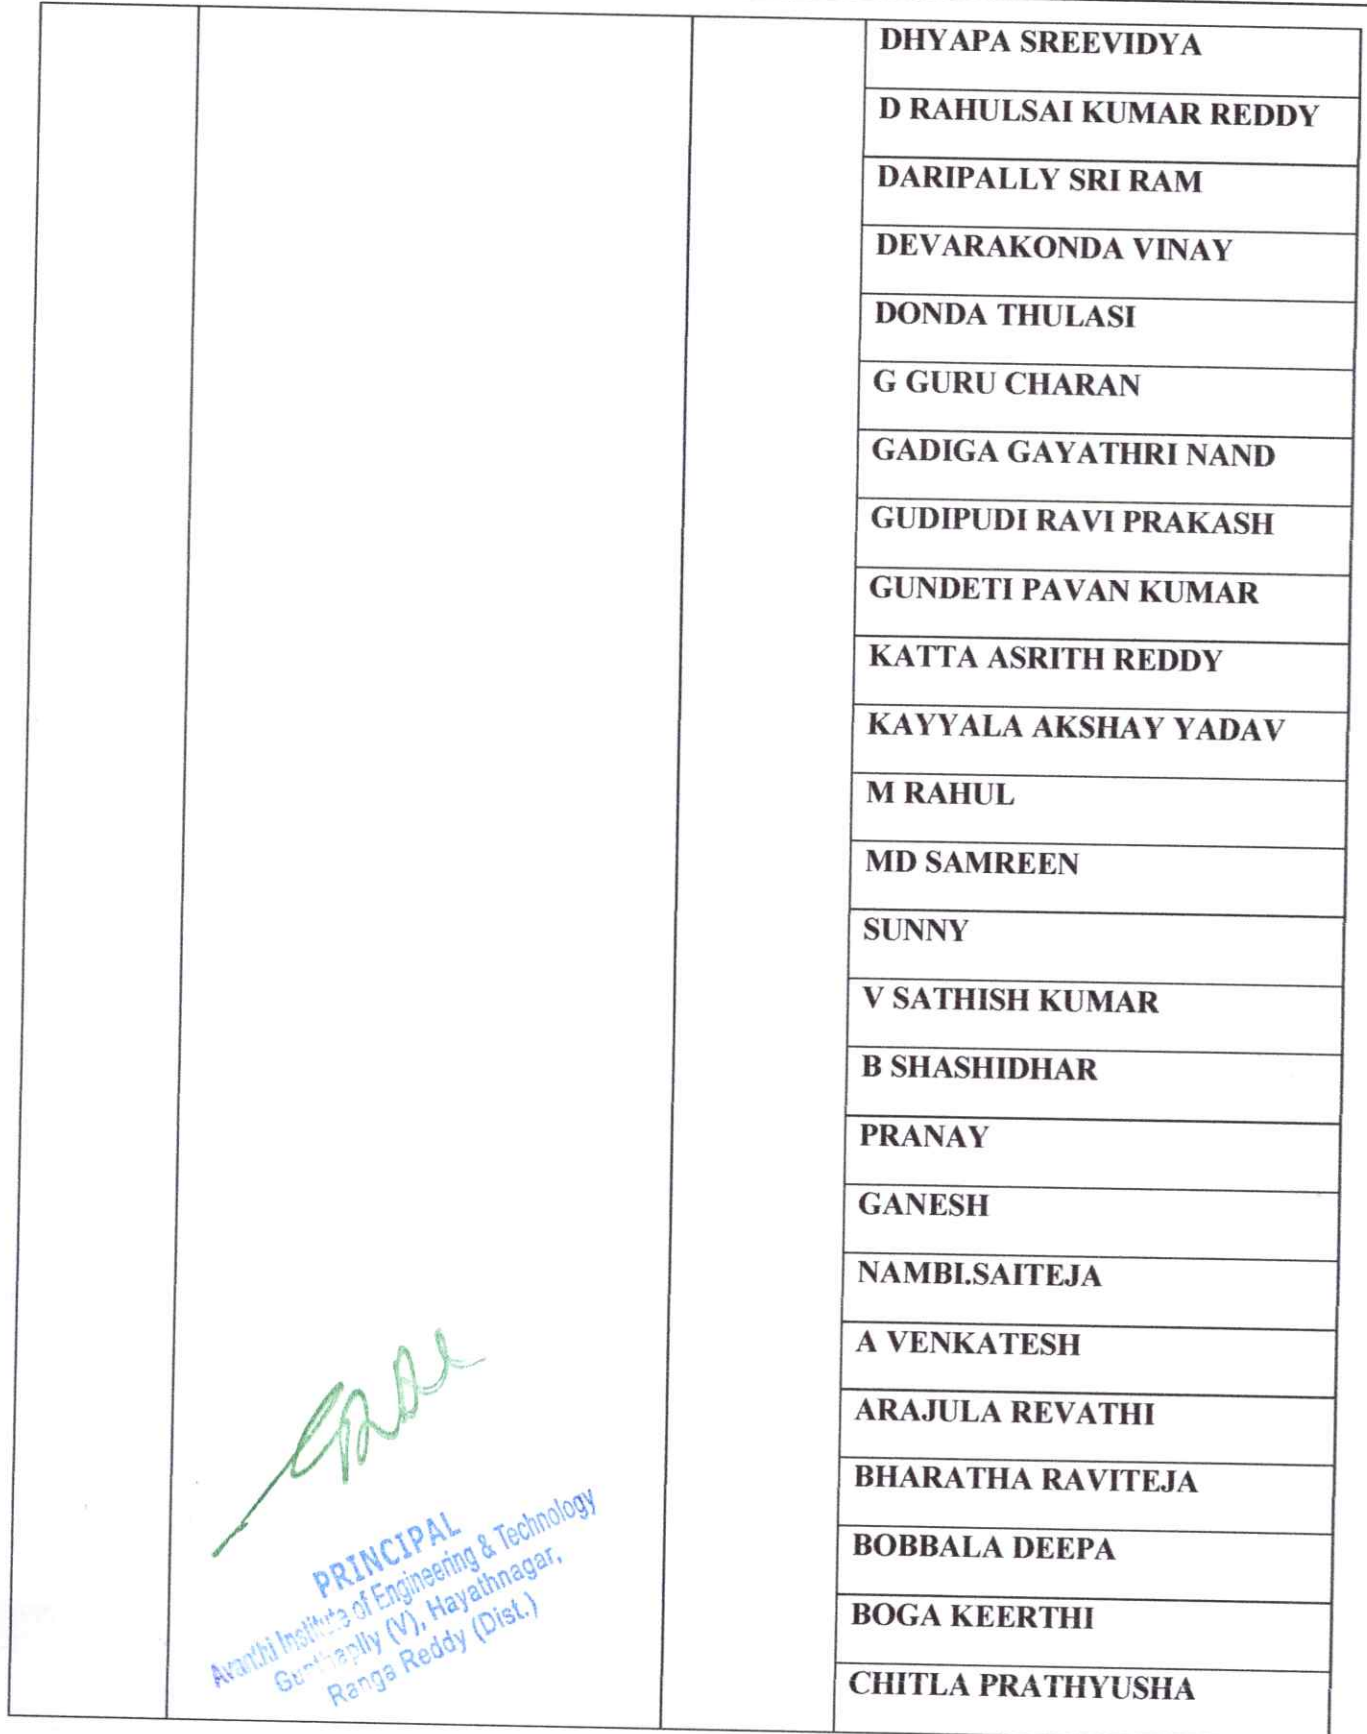 DHYAPA SREEVIDYA
D RAHULSAI KUMAR REDDY
DARIPALLY SRI RAM
DEVARAKONDA VINAY
DONDA THULASI
G GURU CHARAN
GADIGA GAYATHRI NAND
GUDIPUDI RAVI PRAKASH
GUNDETI PAVAN KUMAR
KATTA ASRITH REDDY
KAYYALA AKSHAY YADAV
M RAHUL
MD SAMREEN
SUNNY
V SATHISH KUMAR
B SHASHIDHAR
PRANAY
GANESH
NAMBI.SAITEJA
A VENKATESH
ARAJULA REVATHI
BHARATHA RAVITEJA
BOBBALA DEEPA
BOGA KEERTHI
CHITLA PRATHYUSHA
PRINCIPAL
Avanthi Institute of Engineering & Technology
Gunthaplly (V), Hayathnagar,
Ranga Reddy (Dist.)